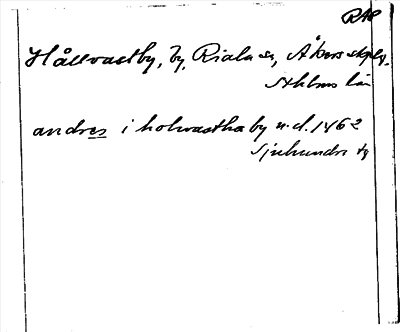 RAP
Hållvastby, by, Riala sn, Åkers skplg,
Sthlms län
andres i holwastha by u.d. 1462
Sjuhundra tg